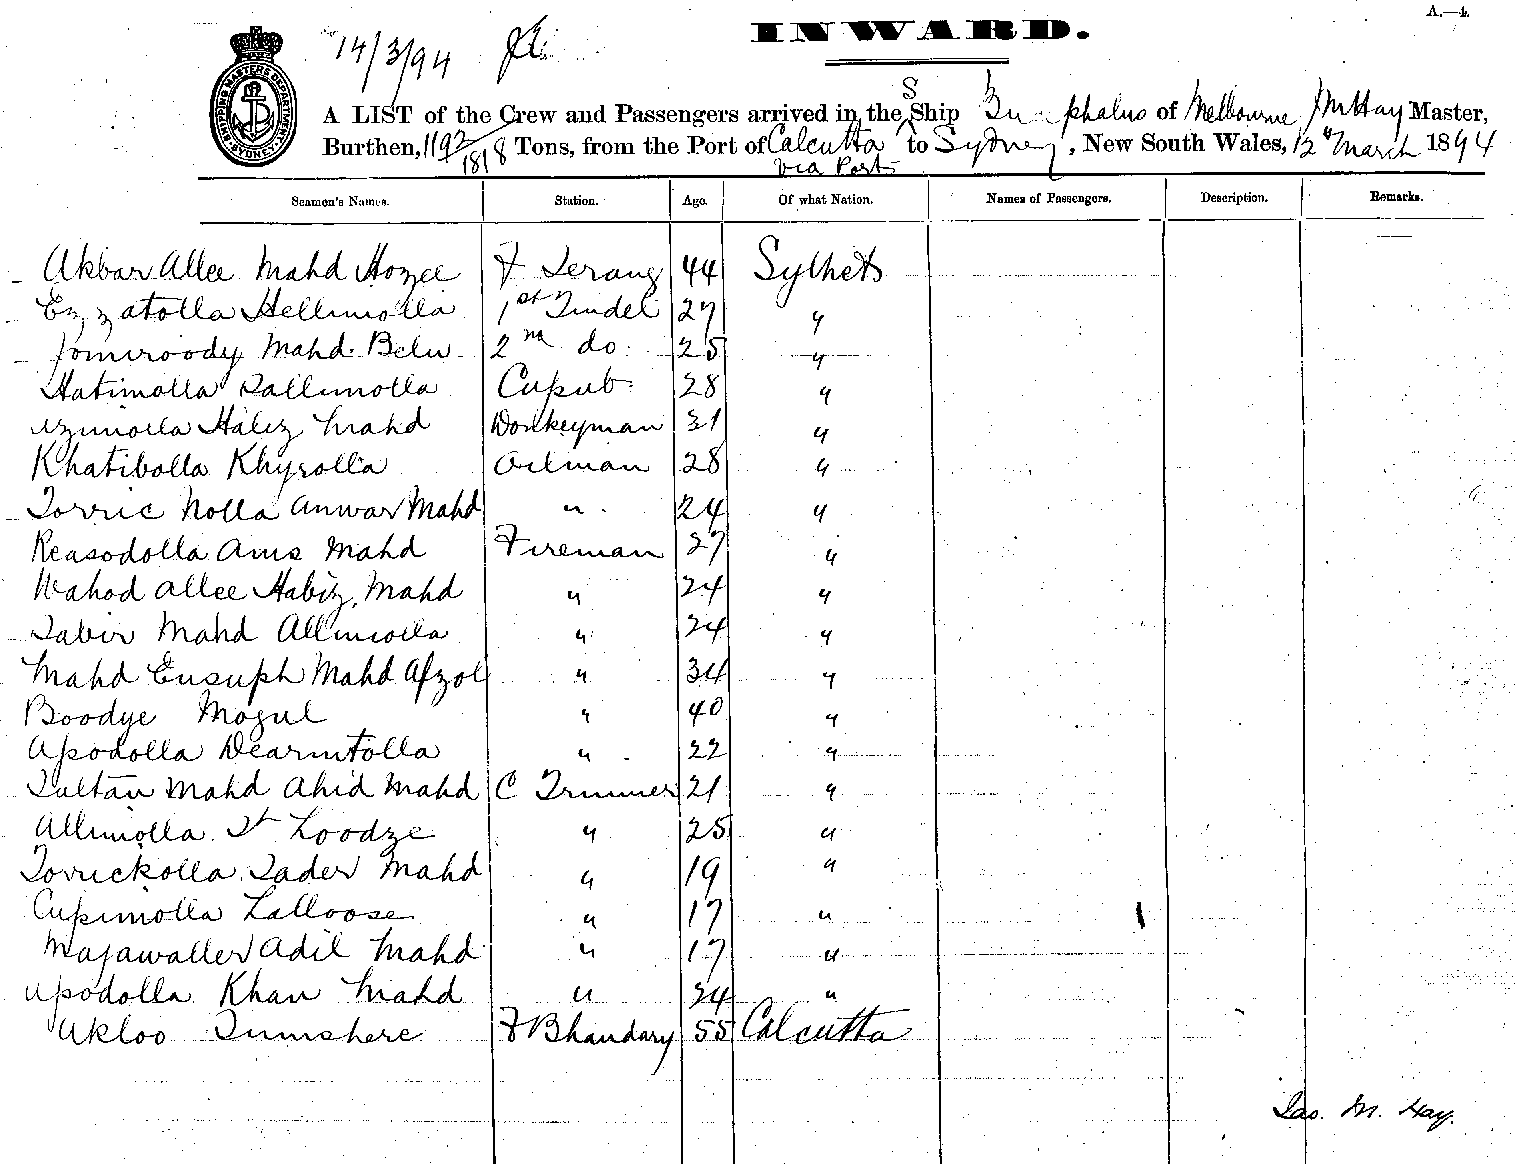 A.—4.
INWARD.
14/3/94
SHIPPING MASTERS DEPARTMENT SYDNEY
A LIST of the Crew and Passengers arrived in the S Ship Bucephalus of Melbourne J M Hay Master,
Burthen, 1192/1818 Tons, from the Port of Calcutta to Sydney, New South Wales, 12th March 1894
via Ports
Seamen's Names. Station. Age. Of what Nation. Names of Passengers. Description. Remarks.
Akbar Allee Mahd Hozee F Serang 44 Sylhets
Ezzatolla Hellimolla 1st Tindel 27 "
Jomiroody Mahd Belu 2nd do. 25 "
Hatimolla Sallimolla Cupub 28 "
Azimolla Habiz Mahd Donkeyman 31 "
Khatibolla Khyrolla Oilman 28 "
Torric Nolla Anwar Mahd " 24 "
Reasodolla Anis Mahd Fireman 27 "
Wahod Allee Habiz Mahd " 24 "
Sabir Mahd Allimolla " 24 "
Mahd Eusuph Mahd Afzol " 34 "
Boodye Mogul " 40 "
Apodolla Dearmtolla " 22 "
Sultan Mahd Ahid Mahd C Trimmer 21 "
Allimolla St Loodze " 25 "
Torrickolla Sader Mahd " 19 "
Cupimolla Lalloose " 17 "
Majawaller Adil Mahd " 17 "
Apodolla Khan Mahd " 24 "
Akloo Sumshere F Bhandary 55 Calcutta
Jas. M. Hay.